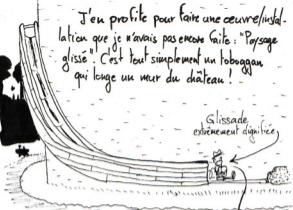 J'en profite pour faire une œuvre/instal-
lation que je n'avais pas encore faite : "Paysage
glissé". C'est tout simplement un toboggan
qui longe un mur du château !
Glissade
extrêmement dignifiée